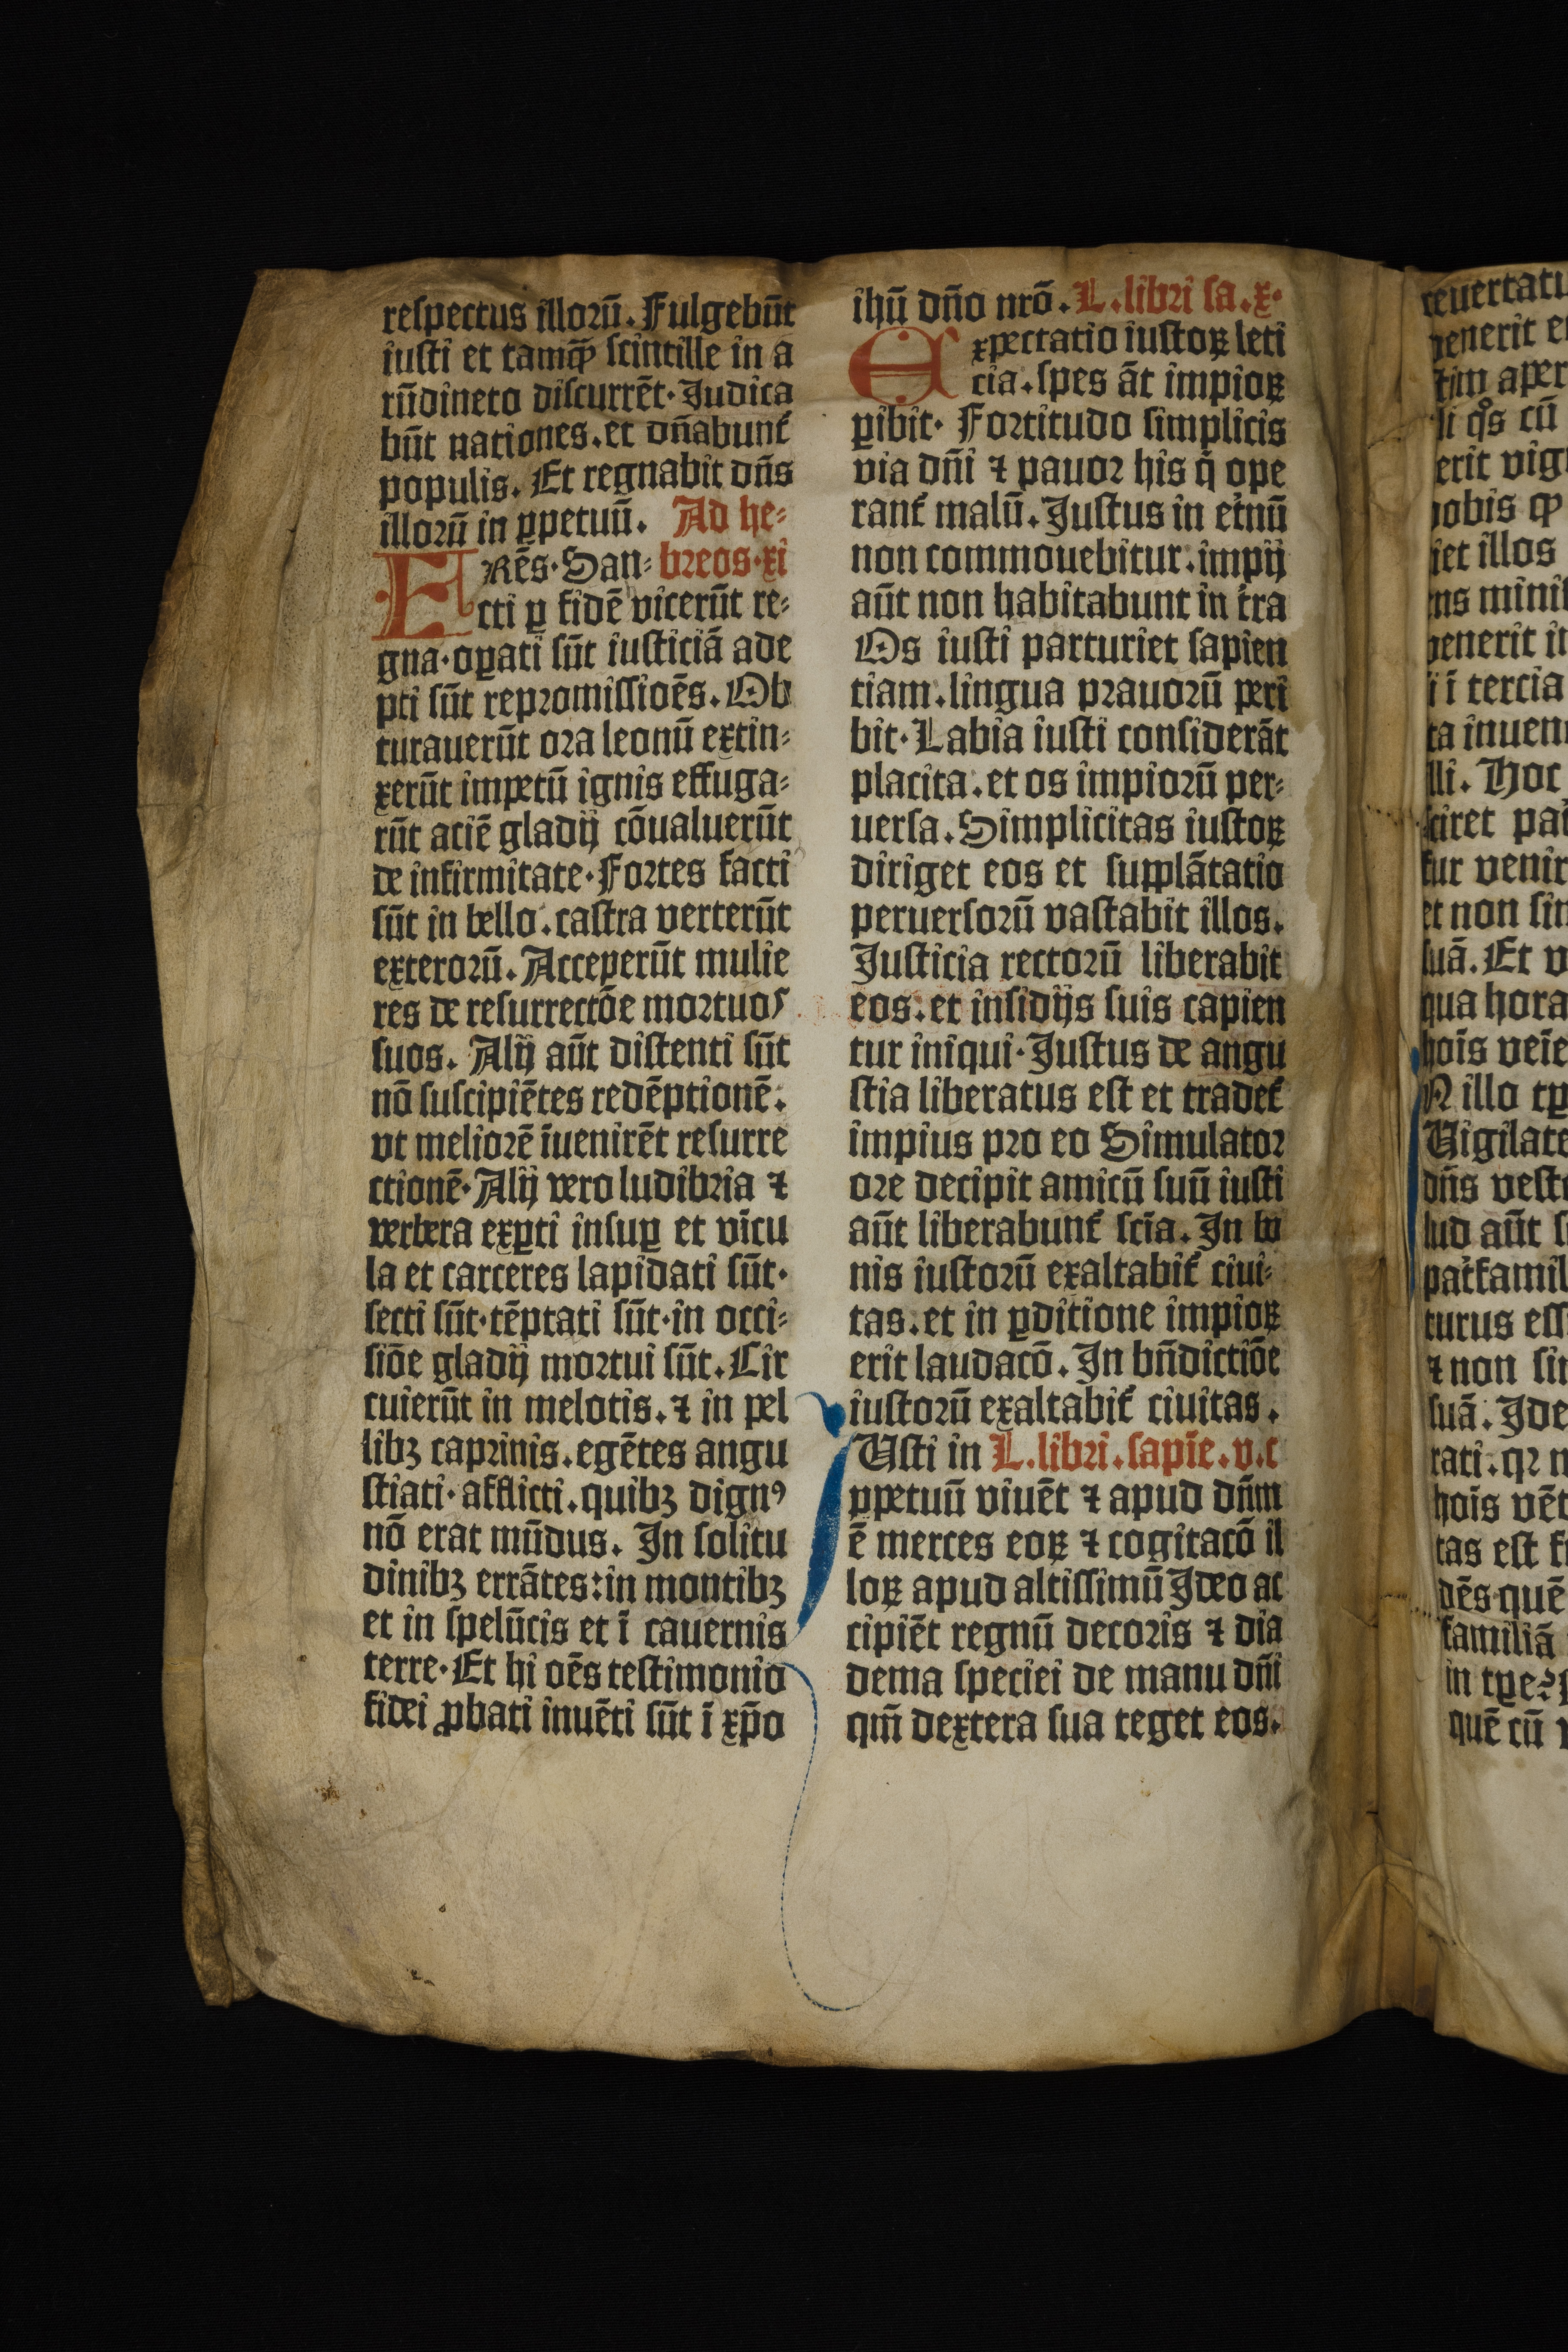 respectus illorū. Fulgebūt
iusti et tamꝙ̄ scintille in a
rūdineto discurrēt. Iudica
būt nationes. et dn̄abunt᷑
populis. Et regnabit dn̄s
illorū in ꝑpetuū. Ad he-
FRēs. San- breos. xi
cti ꝑ fidē vicerūt re-
gna. oꝑati sūt iusticiā ade
pti sūt repromissioēs. Ob
turauerūt ora leonū extin-
xerūt impetū ignis effuga-
rūt aciē gladij cōualuerūt
de infirmitate. Fortes facti
sūt in bello. castra verterūt
exterorū. Acceperūt mulie
res de resurrectōe mortuos
suos. Alij aūt distenti sūt
nō suscipiētes redēptionē.
vt meliorē īuenirēt resurre
ctionē. Alij vero ludibria ⁊
verbera exꝑti insuꝑ et vīcu
la et carceres lapidati sūt.
secti sūt. tēptati sūt. in occi-
siōe gladij mortui sūt. Cir
cuierūt in melotis. ⁊ in pel
libꝫ caprinis. egētes angu
stiati. afflicti. quibꝫ dignꝰ
nō erat mūdus. In solitu
dinibꝫ errātes: in montibꝫ
et in spelūcis et ī cauernis
terre. Et hi oēs testimonio
fidei ꝓbati inuēti sūt ī xp̄o
ihū dn̄o nrō. L. libri sa. x.
Expectatio iustoꝝ leti
cia. spes āt impioꝝ
ꝑibit. Fortitudo simplicis
via dn̄i ⁊ pauor his q̄ ope
rant᷑ malū. Iustus in et᷑nū
non commouebitur. impij
aūt non habitabunt in t᷑ra
Os iusti parturiet sapien
tiam. lingua prauorū peri
bit. Labia iusti considerāt
placita. et os impiorū per-
uersa. Simplicitas iustoꝝ
diriget eos et supplātatio
peruersorū vastabit illos.
Iusticia rectorū liberabit
eos. et insidijs suis capien
tur iniqui. Iustus de angu
stia liberatus est et tradet᷑
impius pro eo Simulator
ore decipit amicū suū iusti
aūt liberabunt᷑ scīa. In bo
nis iustorū exaltabit᷑ ciui-
tas. et in ꝑditione impioꝝ
erit laudacō. In bn̄dictiōe
iustorū exaltabit᷑ ciuitas.
IUsti in L. libri. sapīe. v. c
ꝑpetuū viuēt ⁊ apud dn̄m
ē merces eoꝝ ⁊ cogitacō il
loꝝ apud altissimū Ideo ac
cipiēt regnū decoris ⁊ dia
dema speciei de manu dn̄i
qm̄ dextera sua teget eos.